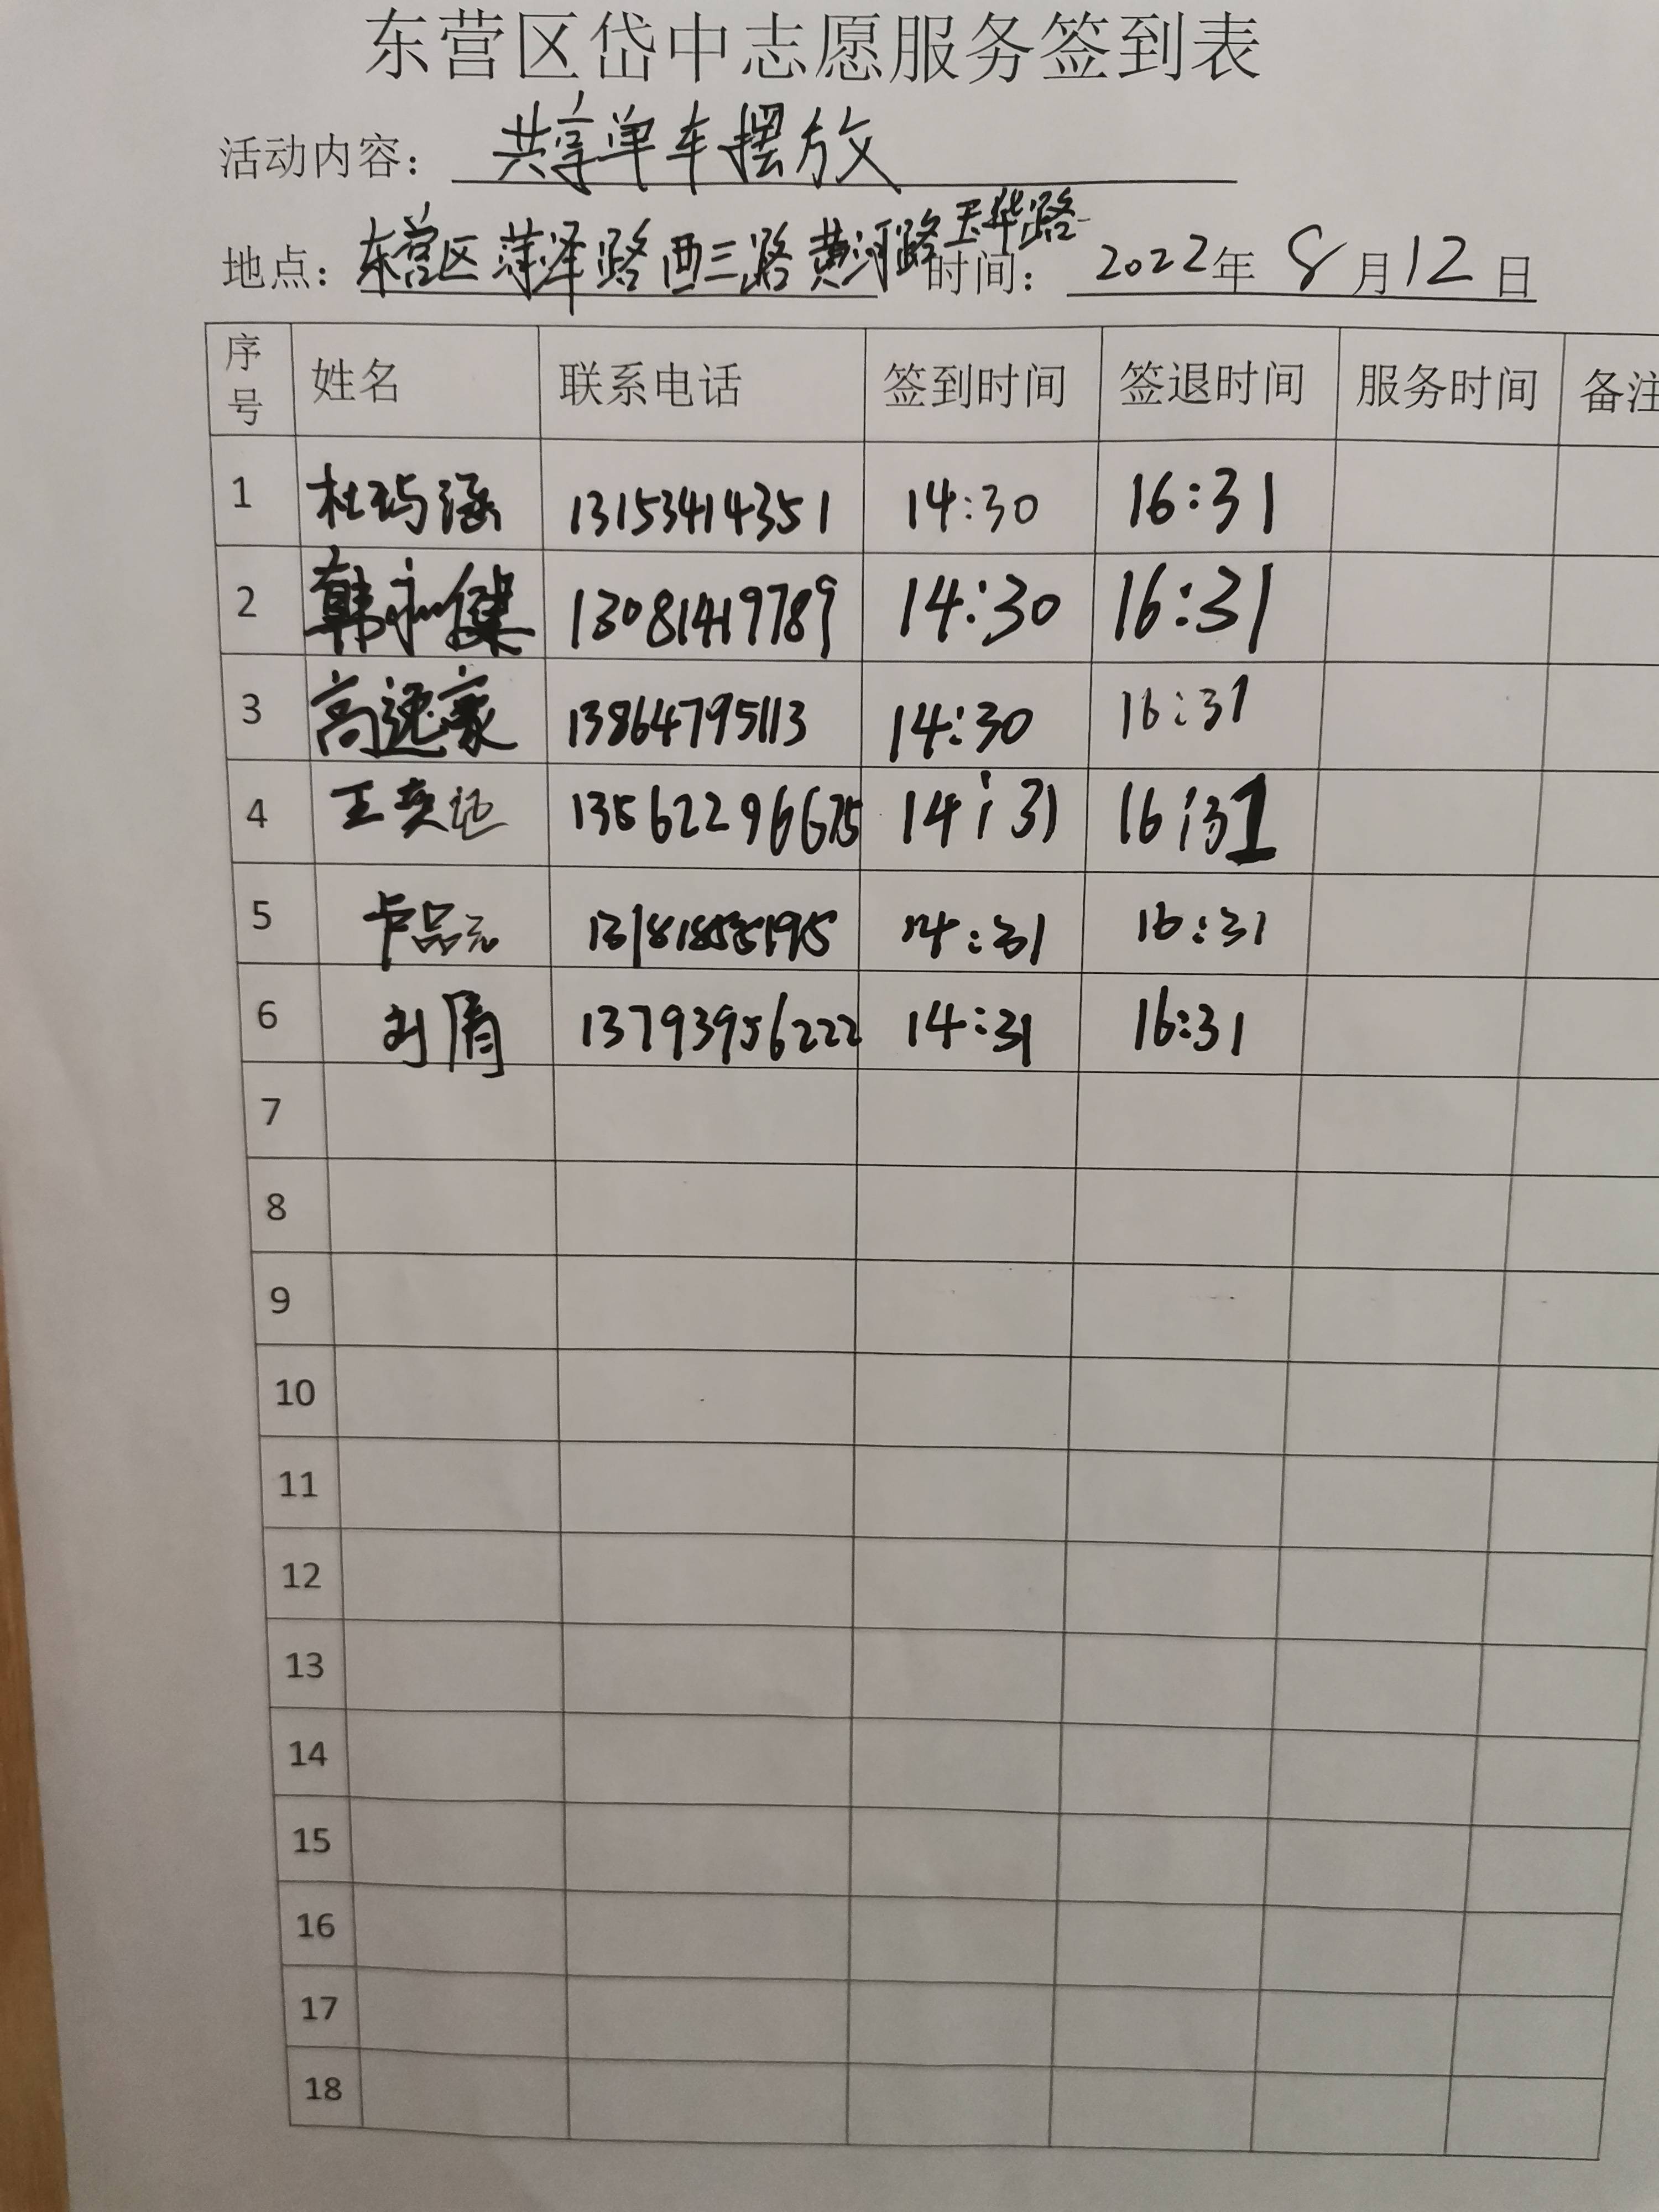 东营区岱中志愿服务签到表
活动内容： 共享单车摆放
地点：东营区菏泽路西三路黄河路玉华路 时间： 2022年 8月12日
序号 姓名 联系电话 签到时间 签退时间 服务时间 备注
1 杜玙涵 13153414351 14:30 16:31
2 韩永健 13081419789 14:30 16:31
3 高逸豪 13864795113 14:30 16:31
4 王奕 13562296675 14:31 16:31
5 卢品元 14:31 16:31
6 刘眉 13793956222 14:31 16:31
7
8
9
10
11
12
13
14
15
16
17
18